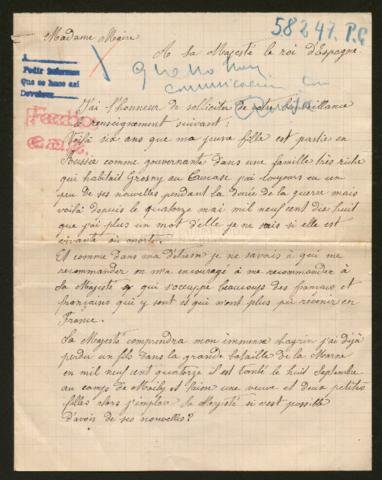 Madame Moire
58247. P.G
A sa Majesté le roi d'Espagne
A
Pedir informes
Que se hace así
Devolver
J'ai l'honneur de solliciter de votre bienveillance
le renseignement suivant:
Voilà six ans que ma jeune fille est partie en
Russie comme gouvernante dans une famille très riche
qui habitait Grosny au Caucase j'ai toujours eu un
peu de ses nouvelles pendant la durée de la guerre mais
voilà depuis le quatorze mai mil neuf cent dix huit
que j'ai plus un mot d'elle je ne sais si elle est
vivante ou morte.
Et comme dans ma détresse je ne savais à qui me
recommander on m'a encouragé à me recommander à
sa Majesté qui s'occupe beaucoup des français et
françaises qui y sont et qui n'ont plus pu revenir en
France.
Sa Majesté comprendra mon immense chagrin j'ai déjà
perdu un fils dans la grande bataille de la Marne
en mil neuf cent quatorze il est tombé le huit Septembre
au camps de Mailly et laisse une veuve et deux petites
filles alors j'implore sa Majesté si c'est possible
d'avoir de ses nouvelles?